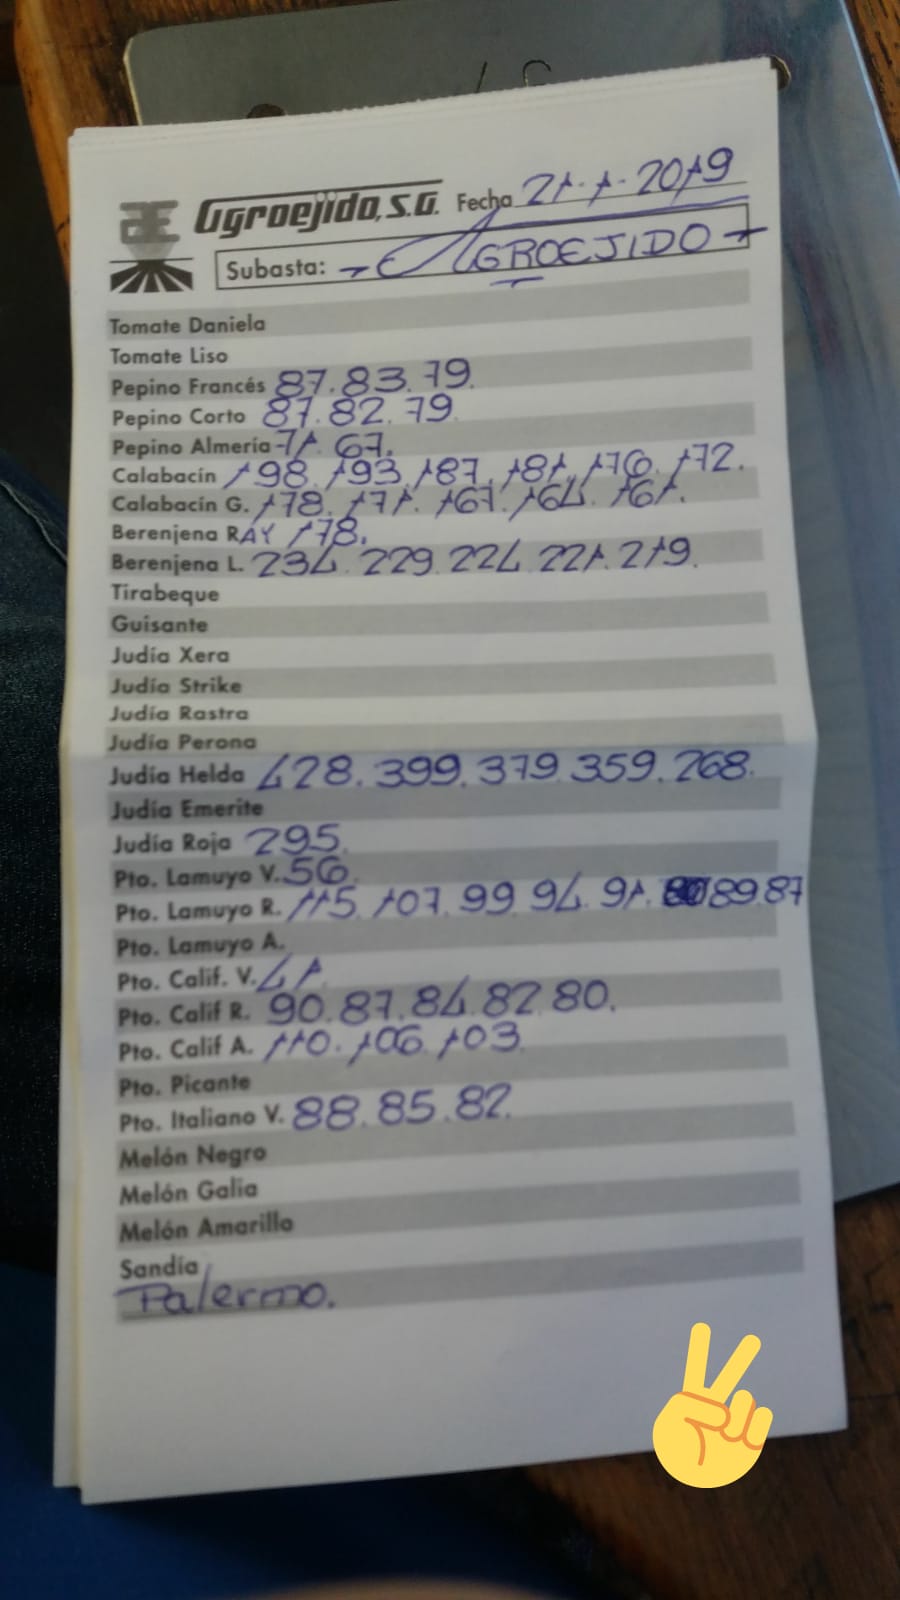 Agroejido, S.A. Fecha 21-1-2019
Subasta: AGROEJIDO
Tomate Daniela
Tomate Liso
Pepino Francés 87. 83. 79.
Pepino Corto 87. 82. 79
Pepino Almería 71. 67.
Calabacín 198. 193. 187. 181. 176. 172.
Calabacín G. 178. 171. 167. 164. 161.
Berenjena RAY 178.
Berenjena L. 234. 229. 224. 221. 219.
Tirabeque
Guisante
Judía Xera
Judía Strike
Judía Rastra
Judía Perona
Judía Helda 428. 399. 379. 359. 268.
Judía Emerite
Judía Roja 295.
Pto. Lamuyo V. 56.
Pto. Lamuyo R. 115. 107. 99. 94. 91. 89. 87
Pto. Lamuyo A.
Pto. Calif. V. 41.
Pto. Calif R. 90. 87. 84. 82. 80.
Pto. Calif A. 110. 106. 103
Pto. Picante
Pto. Italiano V. 88. 85. 82.
Melón Negro
Melón Galia
Melón Amarillo
Sandía
Palermo.